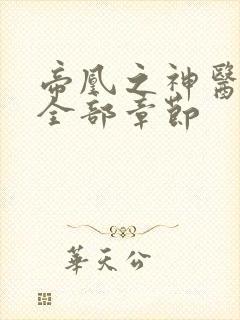 帝凰之神醫
全部章節
華天公